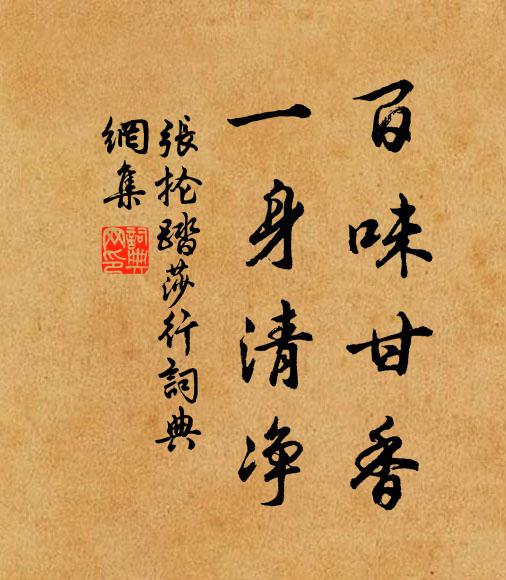 百味甘香
一身清净
張掄踏莎行詞典
網集
詞典網印